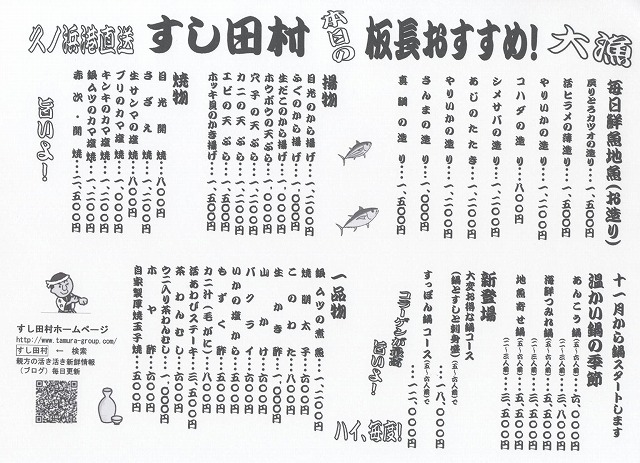 久ノ浜港直送
すし田村
本日の
板長おすすめ!
大漁
毎日鮮魚地魚(お造り)
戻りとろカツオの造り…一、二〇〇円
活ヒラメの薄造り…一、五〇〇円
やりいかの造り…一、二〇〇円
コハダの造り…八〇〇円
シメサバの造り…一、二〇〇円
あじのたたき…一、二〇〇円
やりいかの造り…一、二〇〇円
さんまの造り…一、二〇〇円
真鯛の造り…一、五〇〇円
揚物
目光のから揚げ…一、二〇〇円
ふぐのから揚げ…一、二〇〇円
生だこのから揚げ…一、〇〇〇円
ホウボウの天ぷら…一、五〇〇円
穴子の天ぷら…一、二〇〇円
カニの天ぷら…一、二〇〇円
エビの天ぷら…一、二〇〇円
ホッキ貝のかき揚げ…一、五〇〇円
焼物
目光開焼…八〇〇円
さざえ焼…一、二〇〇円
生サンマの塩焼…八〇〇円
ブリのカマ塩焼…一、〇〇〇円
キンキのカマ塩焼…一、二〇〇円
銀ムツのカマ塩焼…一、二〇〇円
赤次・開焼…二、五〇〇円
旨いよー!
十一月から鍋スタートします
温かい鍋の季節
あんこう鍋
海鮮つみれ鍋
地魚寄せ鍋
新登場
大変お得な鍋コース
(鍋とすしと刺身等)
すっぽん鍋コース
コラーゲンが豊富
旨いよー!
ハイ、毎度!
一品物
銀ムツの煮魚…一、二〇〇円
焼明太子…六〇〇円
このわた…八〇〇円
生かき…六〇〇円
山かけ…六〇〇円
バクライ…六〇〇円
いかの塩から…五〇〇円
もずく酢…五〇〇円
カニ汁(毛がに)…八〇〇円
活あわびステーキ…三、五〇〇円
茶わんむし…六〇〇円
ウニ入り茶わんむし…一、〇〇〇円
ホヤ酢…六〇〇円
自家製厚焼玉子焼…五〇〇円
すし田村ホームページ
http://www.tamura-group.com/
すし田村 ← 検索
親方の活き活き新鮮情報
(ブログ) 毎日更新